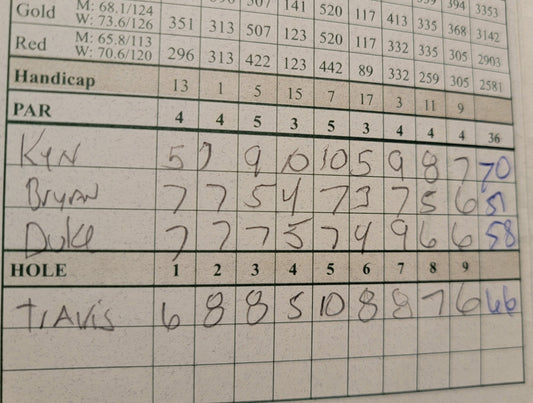 394 3353
Gold M: 68.1/124 W: 73.6/126 351 313 507 141 520 117 413 335 368 3142
Red M: 65.8/113 W: 70.6/120 296 313 507 123 520 117 332 335 305 2903
422 123 442 89 332 259 305 2581
Handicap 13 1 5 15 7 17 3 11 9
PAR 4 4 5 3 5 3 4 4 4 36
Kyn 5 7 9 10 10 5 9 8 7 70
Bryan 7 7 5 4 7 3 7 5 6 51
Duke 7 7 7 5 7 4 9 6 6 58
HOLE 1 2 3 4 5 6 7 8 9
TRAVIS 6 8 8 5 10 8 8 7 6 66